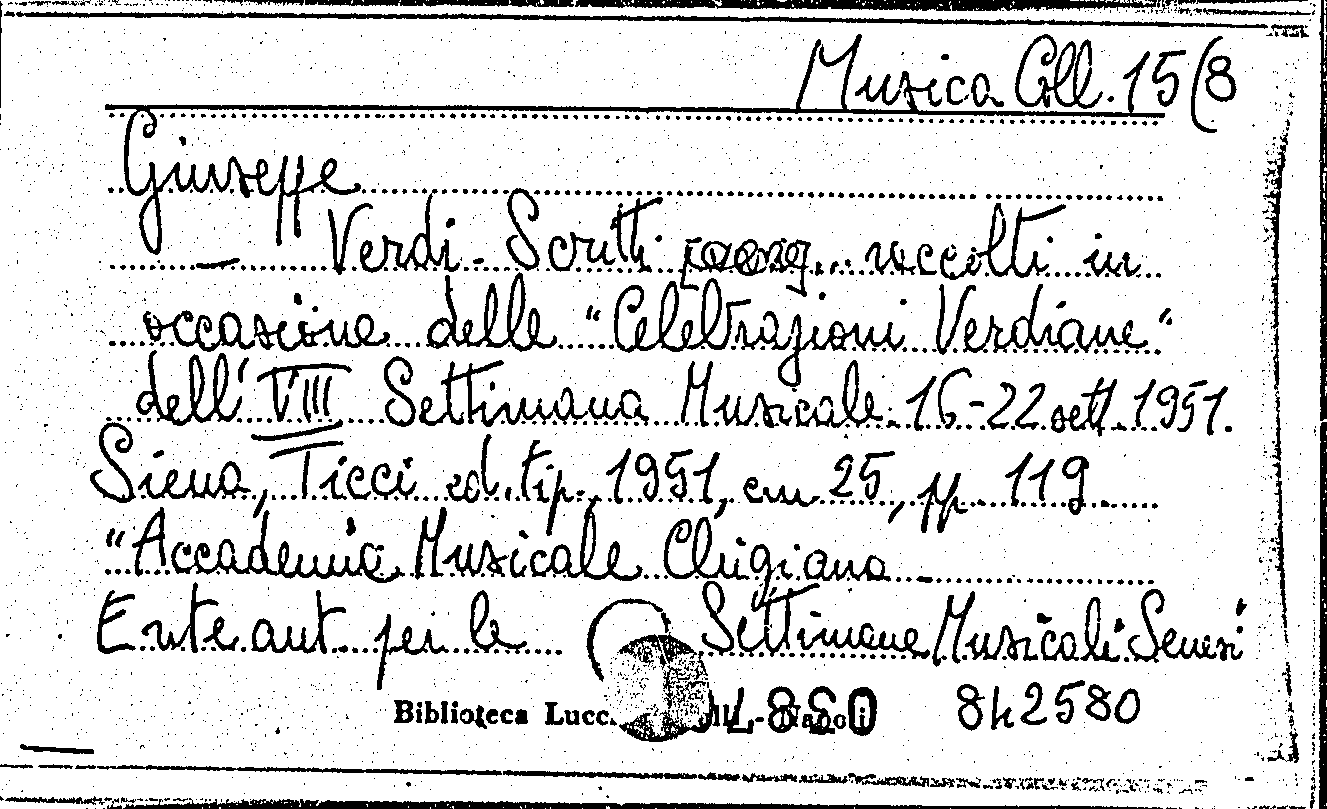 Musica Coll. 15(8
Giuseppe
— Verdi - Scritti raccolti in
occasione delle "Celebrazioni Verdiane"
dell'VIII Settimana Musicale. 16-22 sett. 1951.
Siena, Ticci ed. tip. 1951, cm 25, pp. 119.
"Accademia Musicale Chigiana -
Ente aut. per le Settimane Musicali Senesi"
Biblioteca Lucc. - Napoli 842580